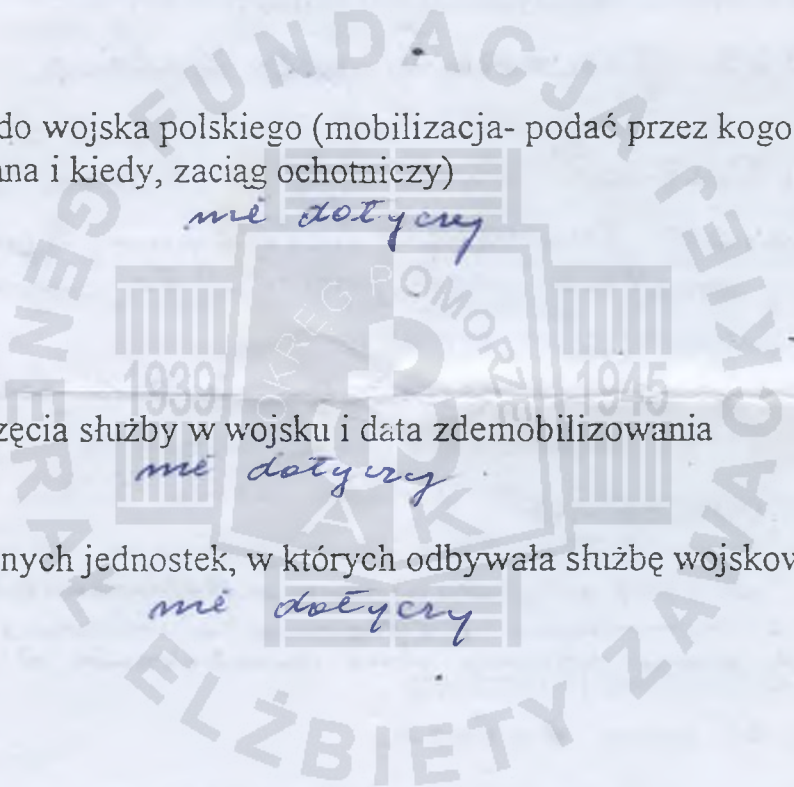 do wojska polskiego (mobilizacja- podać przez kogo
na i kiedy, zaciąg ochotniczy)
nie dotyczy
zęcia służby w wojsku i data zdemobilizowania
nie dotyczy
nych jednostek, w których odbywała służbę wojskow
nie dotyczy
FUNDACJA GENERAŁ ELŻBIETY ZAWACKIEJ
OKRĘG POMORZE
1939
1945
AK